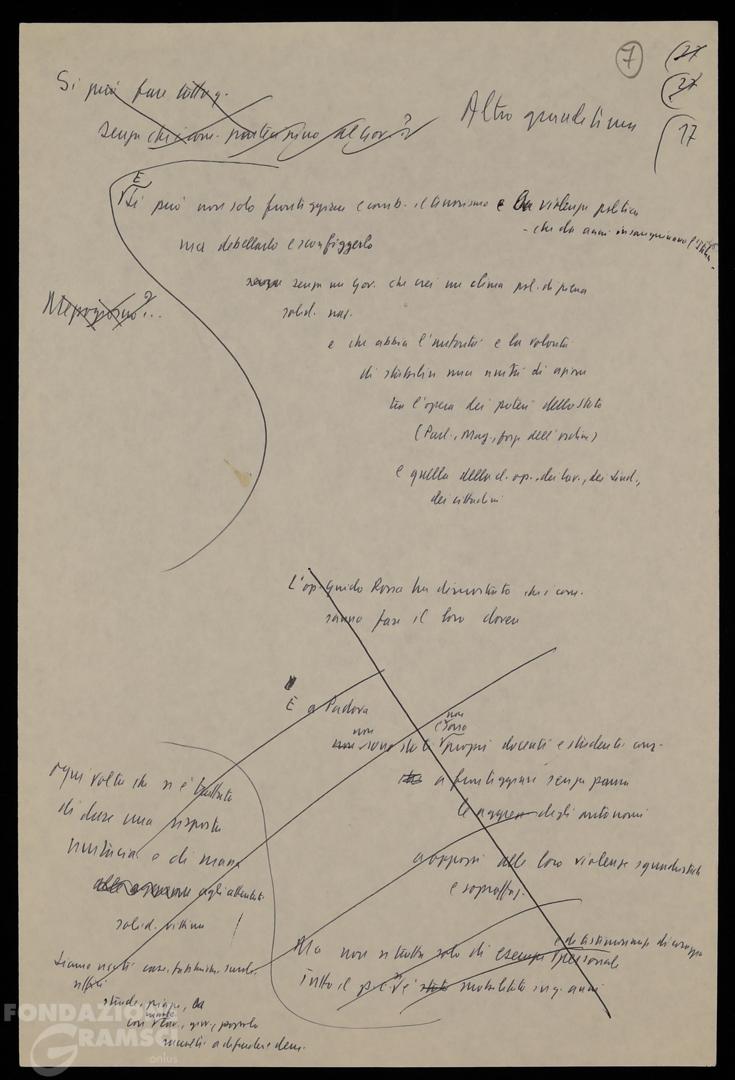 7
27
27
17
Si può fare tutto q.
senza che i com. partecipino al Gov.?
Altro quudelima
E
Si può non solo fronteggiare e comb. il terrorismo e la violenza politica
- che da anni insanguinano l'Italia -
ma debellarlo e sconfiggerlo
senza un Gov. che crei un clima pol. di piena
solid. naz.
Mezzogiorno?...
e che abbia l'autorità e la volontà
di stabilire una unità di azione
tra l'opera dei poteri dello Stato
(Parl., Mag., forze dell'ordine)
e quella della cl. op., dei lav., dei sind.,
dei cittadini
L'op. Guido Rossa ha dimostrato che i com.
sanno fare il loro dovere
E a Padova
non
non sono stati proprio docenti e studenti com.
a fronteggiare senza paura
le aggress. degli autonomi
a opporsi alle loro violenze squadristiche
e sopraffaz.
ogni volta che si è trattato
di dare una risposta
unitaria e di massa
agli attentati
solid. vittime
Ma non si tratta solo di esempi e di testimonianze di coraggio
personale
tutto il p. si è mobilitato in q. anni
Siamo usciti case, fabbriche, scuole,
uffici
strade, piazze,
con lav., giov., popolo
uniti a difendere dem.
FONDAZIONE
GRAMSCI
onlus